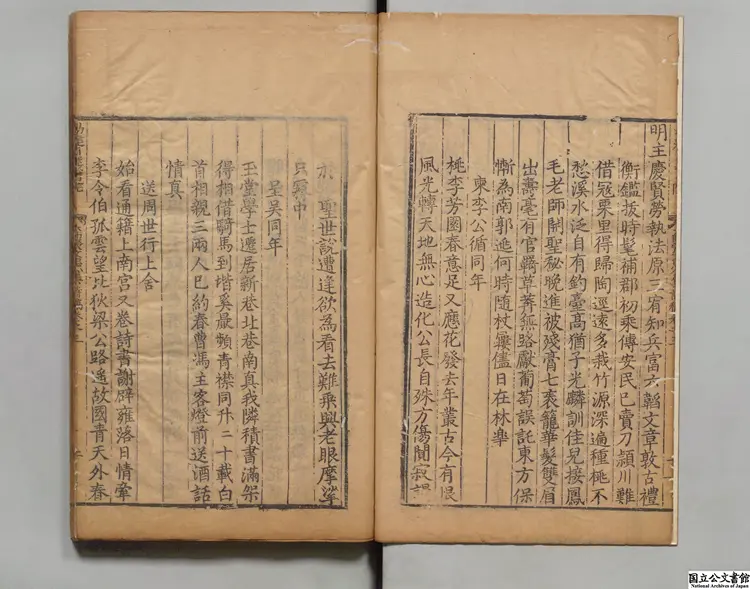 明主慶賢勞執法原三宥知兵富六韜文章敦古禮
衡鑑拔時髦補郡初乘傳安民已賣刀潁川難
借冠栗里得歸陶逕遠多栽竹源深過種桃不
愁溪水泛自有釣臺高猶子光麟訓佳兒接鳳
毛老師開聖秘晚進被殘膏七裘籠華髮雙眉
出壽毫有官羈草莽無路獻葡萄誤託東方保
慚為南郭逃何時隨杖屨儘日在林皋
柬李公循同年
桃李芳園春意足又應花發去年叢古今有恨
風光轉天地無心造化公長自殊方傷閒寂
聖世說遭逢欲為看去難乘興老眼摩挲
只霧中
呈吳同年
玉堂學士遷居新巷北巷南真我隣積書滿架
得相借騎馬到堦奚嚴頓青襟同升二十載白
首相親三兩人已約春曹馮主客燈前送酒話
情真
送周世行上舍
始看通籍上南宮又卷詩書謝辟雍落日情牽
李令伯孤雲望北狄梁公路遙故國青天外春
国立公文書館
National Archives of Japan